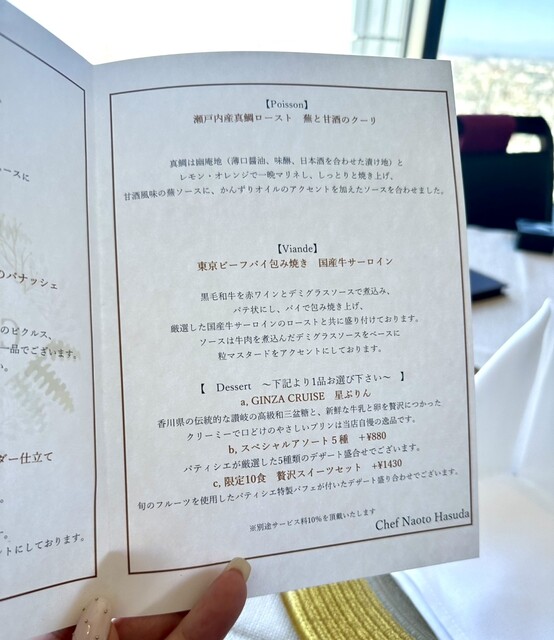 スに
のパナッシェ
のピクルス、
一品でございます。
い。
ダー仕立て
ントにしております。
【Poisson】
瀬戸内産真鯛ロースト　蕪と甘酒のクーリ
真鯛は幽庵地（薄口醤油、味醂、日本酒を合わせた漬け地）と
レモン・オレンジで一晩マリネし、しっとりと焼き上げ、
甘酒風味の蕪ソースに、かんずりオイルのアクセントを加えたソースを合わせました。
【Viande】
東京ビーフパイ包み焼き　国産牛サーロイン
黒毛和牛を赤ワインとデミグラスソースで煮込み、
パテ状にし、パイで包み焼き上げ、
厳選した国産牛サーロインのローストと共に盛り付けております。
ソースは牛肉を煮込んだデミグラスソースをベースに
粒マスタードをアクセントにしております。
【　Dessert　～下記より1品お選び下さい～　】
a, GINZA CRUISE　星ぷりん
香川県の伝統的な讃岐の高級和三盆糖と、新鮮な牛乳と卵を贅沢につかった
クリーミーで口どけのやさしいプリンは当店自慢の逸品です。
b, スペシャルアソート５種　+¥880
パティシエが厳選した5種類のデザート盛合せでございます。
c, 限定10食　贅沢スイーツセット　+¥1430
旬のフルーツを使用したパティシエ特製パフェが付いたデザート盛り合わせでございます。
※別途サービス料10%を頂戴いたします
Chef Naoto Hasuda